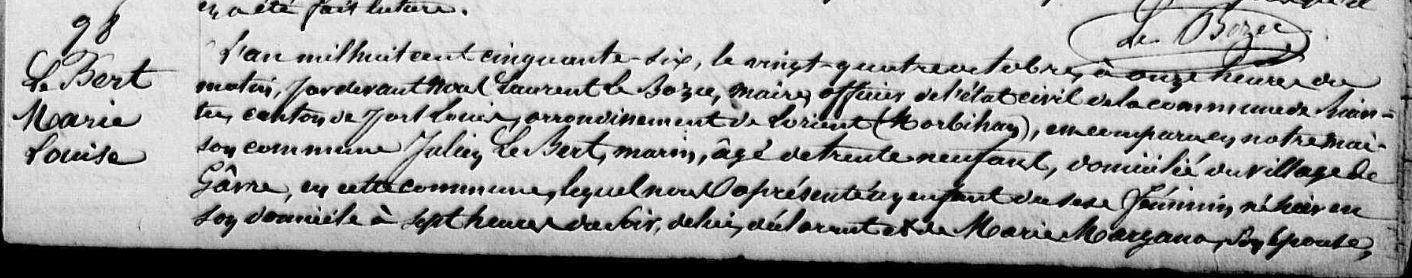 en a été fait lecture.
Le Bozec
98
Le Bert
Marie
Louise
L'an mil huit cent cinquante-six, le vingt-quatre octobre, à onze heures du
matin, par devant Nous Laurent Le Bozec, maire, officier de l'état civil de la commune de Rian-
tec, canton de Port Louis, arrondissement de Lorient (Morbihan), est comparu en notre mai-
son commune Julien Le Bert, marin, âgé de trente neuf ans, domicilié au village de
Gâvre, en cette commune, lequel nous a présenté un enfant du sexe féminin, né hier en
son domicile à sept heures du soir, de lui, déclarant et de Marie Margana, son épouse,